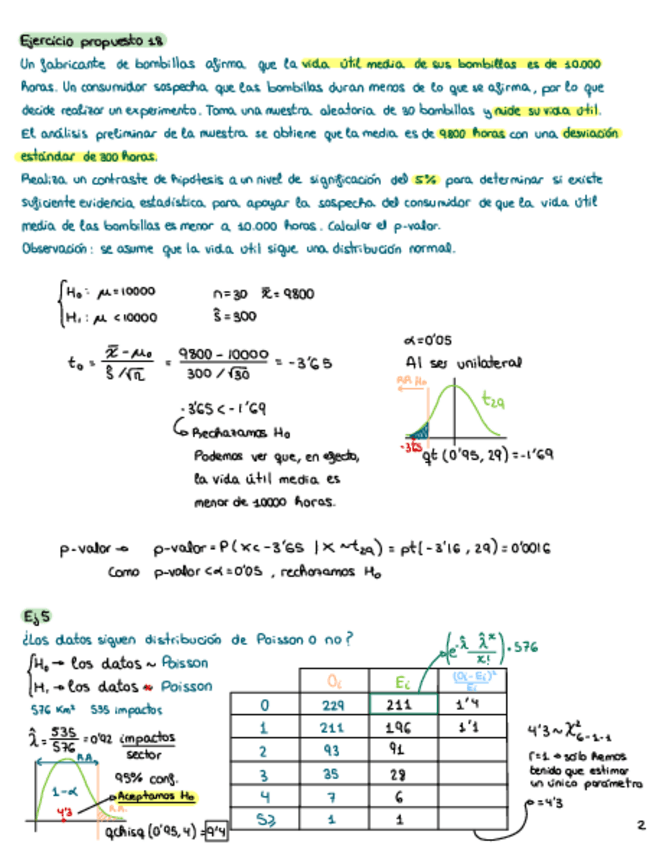 Ejercicio propuesto 18
Un fabricante de bombillas afirma que la vida útil media de sus bombillas es de 10.000
horas. Un consumidor sospecha que las bombillas duran menos de lo que se afirma, por lo que
decide realizar un experimento. Toma una muestra aleatoria de 30 bombillas y mide su vida útil.
El análisis preliminar de la muestra se obtiene que la media es de 9800 horas con una desviación
estándar de 300 horas.
Realiza un contraste de hipótesis a un nivel de significación del 5% para determinar si existe
suficiente evidencia estadística para apoyar la sospecha del consumidor de que la vida útil
media de las bombillas es menor a 10.000 horas. Calcular el p-valor.
Observación: se asume que la vida útil sigue una distribución normal.
H₀: μ = 10000 n=30 x̄ = 9800
H₁: μ < 10000 ŝ = 300
t₀ = (x̄ - μ₀) / (ŝ/√n) = (9800 - 10000) / (300/√30) = -3'65
α=0'05
Al ser unilateral
RR H₀
t₂₉
-3'65
qt (0'95, 29) = -1'69
-3'65 < -1'69
Rechazamos H₀
Podemos ver que, en efecto,
la vida útil media es
menor de 10000 horas.
p-valor → p-valor = P(X < -3'65 | X ~ t₂₉) = pt(-3'16, 29) = 0'0016
Como p-valor < α = 0'05, rechazamos H₀
Ej 5
¿Los datos siguen distribución de Poisson o no?
H₀ → los datos ~ Poisson
H₁ → los datos ~ Poisson
576 Km² 535 impactos
λ̂ = 535/576 = 0'92 impactos/sector
R.A.
1-α
4'3
R.R.
95% conf.
Aceptamos H₀
qchisq (0'95, 4) = 9'4
(e^-λ̂ λ̂^x/x!) · 576
Oᵢ Eᵢ (Oᵢ-Eᵢ)²/Eᵢ
0 229 211 1'4
1 211 196 1'1
2 93 91
3 35 28
4 7 6
5≥ 1 1
4'3 ~ χ²₆₋₁₋₁
r=1 → solo hemos
tenido que estimar
un único parámetro
= 4'3
2